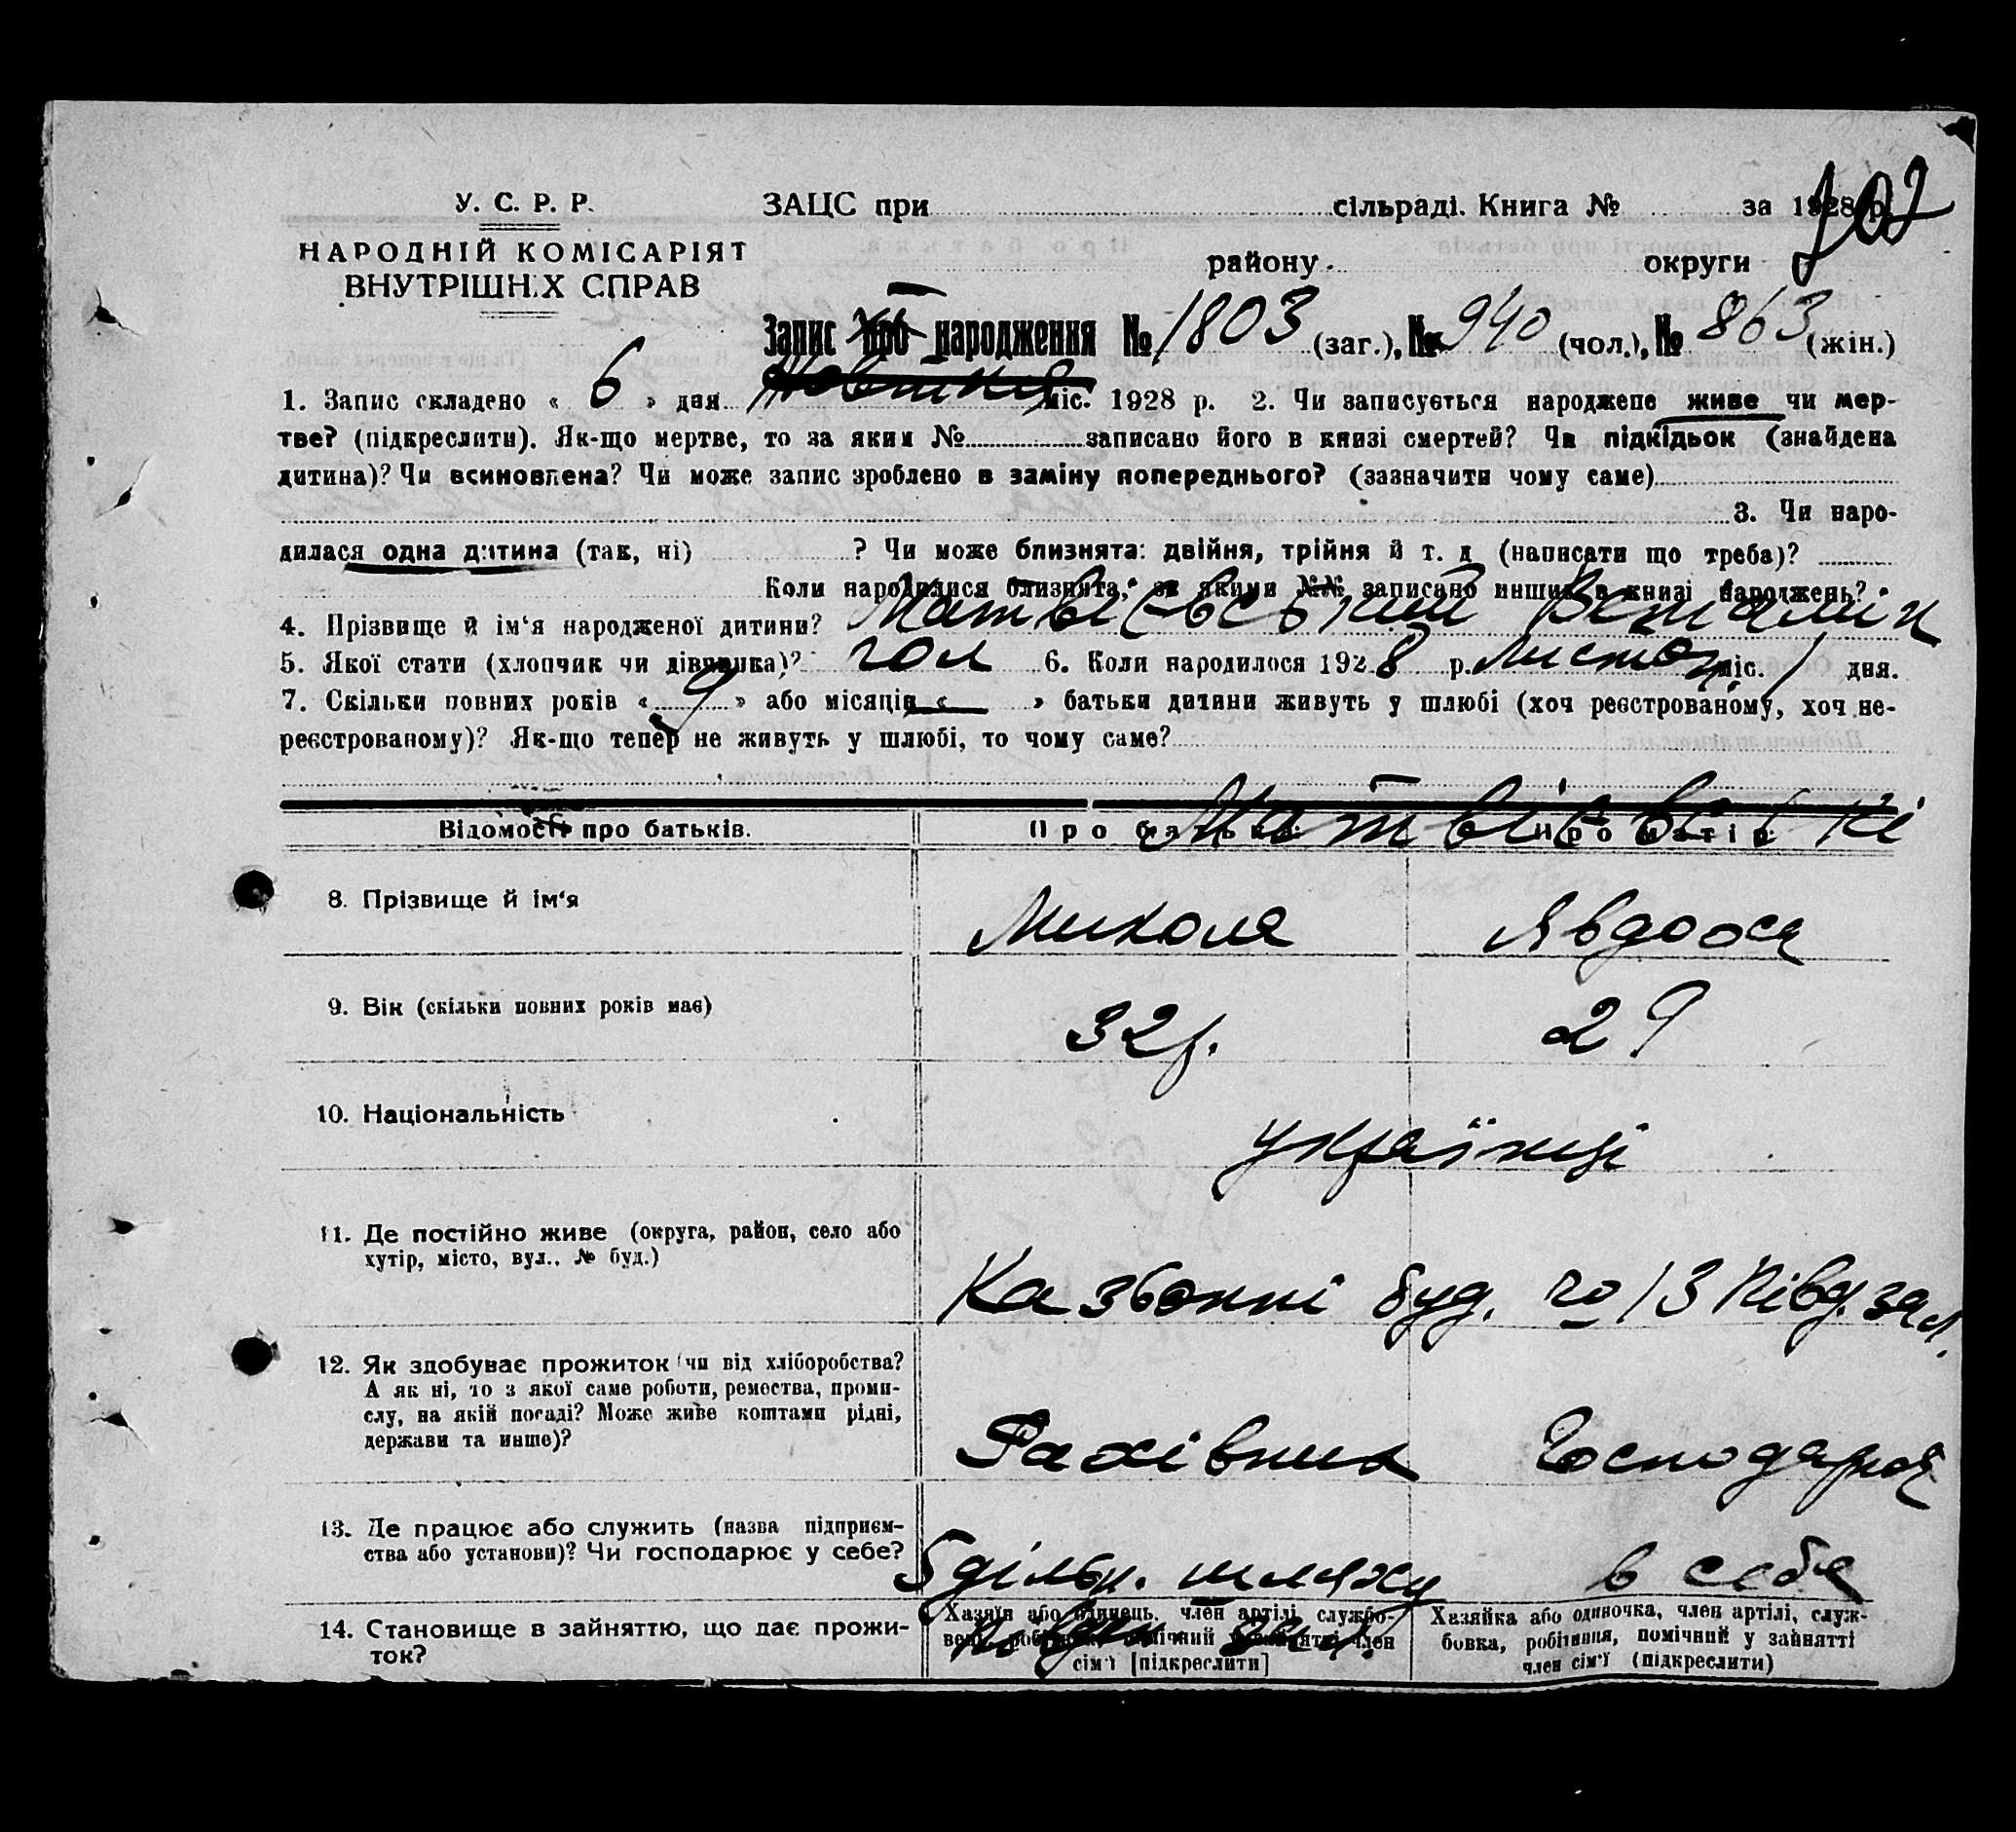 202
У. С. Р. Р. ЗАЦС при сільраді. Книга № за 1928 р.
НАРОДНІЙ КОМІСАРІЯТ
ВНУТРІШНіХ СПРАВ
району округи
Запис про народження № 1803 (заг.), № 940 (чол.), № 863 (жін.)
1. Запис складено « 6 » дня міс. 1928 р. 2. Чи записується народжене живе чи мер-
тве? (підкреслити). Як-що мертве, то за яким № записано його в книзі смертей? Чи підкідьок (знайдена
дитина)? Чи всиновлена? Чи може запис зроблено в заміну попереднього? (зазначити чому саме)
3. Чи наро-
дилася одна дитина (так, ні) ? Чи може близнята: двійня, трійня й т. д (написати що треба)?
Коли народилися близнята, за якими №№ записано инших в книзі народжень?
4. Прізвище й ім‘я народженої дитини? Матвієвський Віталий
5. Якої стати (хлопчик чи дівчинка)? чол 6. Коли народилося 1928 р. Листоп. міс. 1 дня.
7. Скільки повних років « 9 » або місяців « — » батьки дитини живуть у шлюбі (хоч реєстрованому, хоч не-
реєстрованому)? Як-що тепер не живуть у шлюбі, то чому саме?
Відомості про батьків. Про батька: Про матір:
Матвієвські
8. Прізвище й ім‘я Микола Явдоося
9. Вік (скільки повних років має) 32 р. 29
10. Національність українці
11. Де постійно живе (округа, район, село або
хутір, місто, вул., № буд.)
Казьонні буд. 13 Півд. зал.
12. Як здобуває прожиток (чи від хліборобства?
А як ні, то з якої саме роботи, ремества, проми-
слу, на якій посаді? Може живе коштами рідні,
держави та инше)?
Фахівник Господарка
13. Де працює або служить (назва підприєм-
ства або установи)? Чи господарює у себе?
5 дільн. шляху в себе
Півден. зал.
14. Становище в зайняттю, що дає прожи-
ток?
Хазяїн або одинець, член артілі, службо-
вець, робітник, помічний у зайнятті член
сім‘ї [підкреслити]
Хазяйка або одиночка, член артілі, служ-
бовка, робітниця, помічний у зайнятті
член сім‘ї (підкреслити)